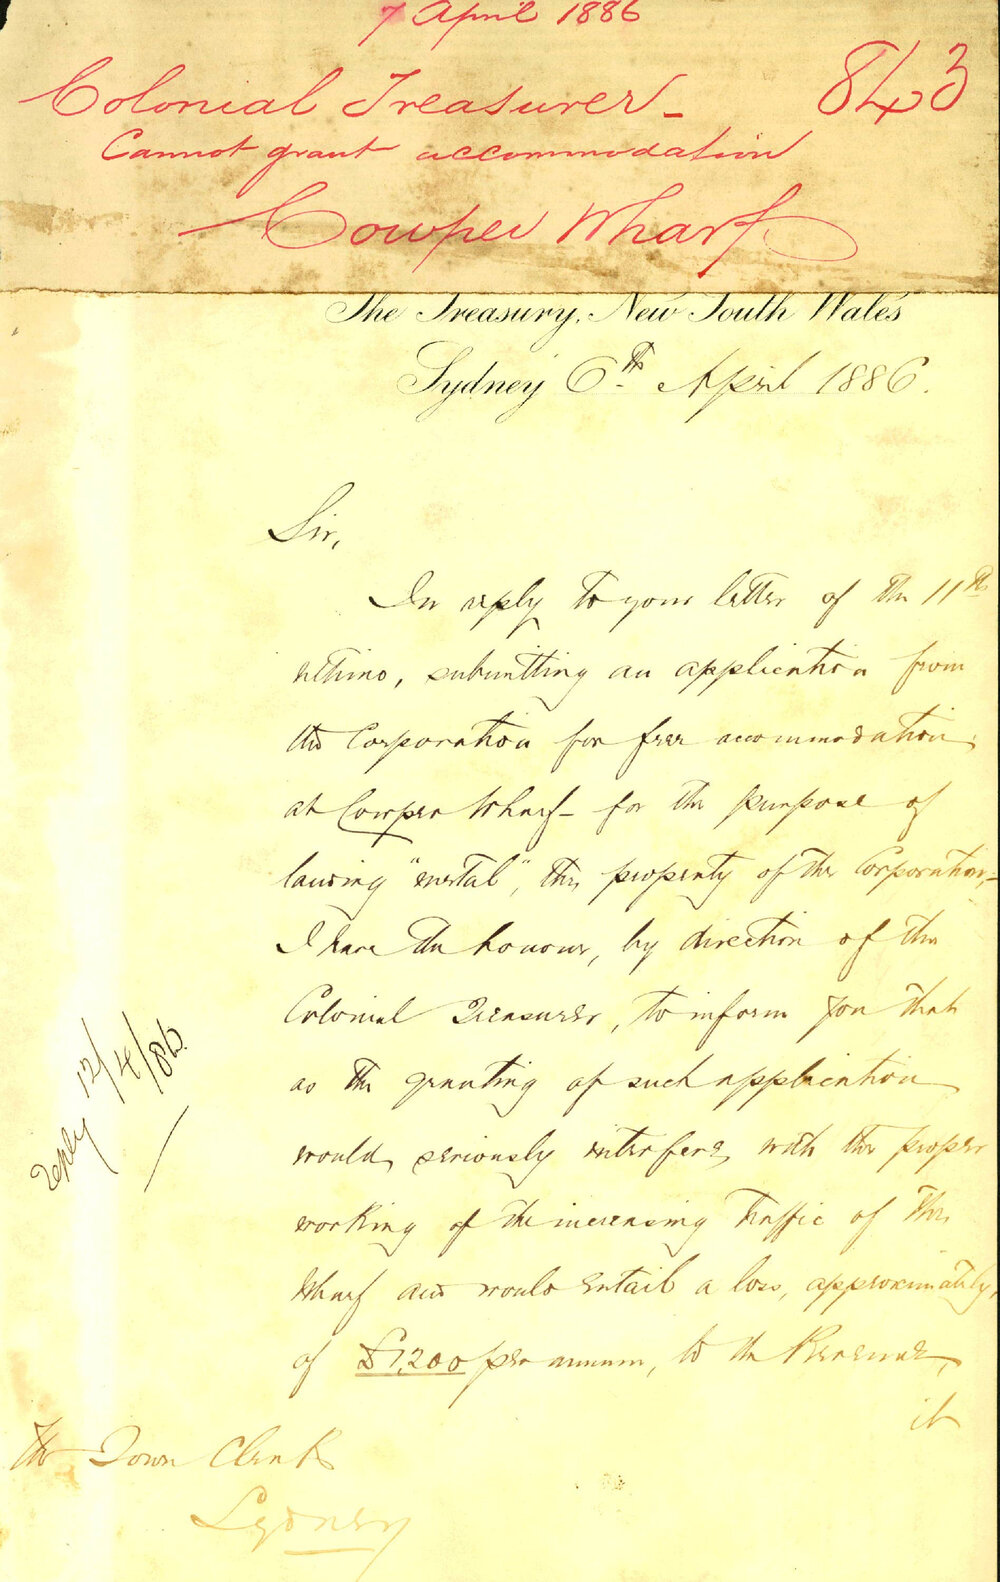 7 April 1886
Colonial Treasurer - 843
Cannot grant accommodation
Cowper Wharf
The Treasury, New South Wales
Sydney 6th April 1886.
Sir,
In reply to your letter of the 11th
ultimo, submitting an application from
the Corporation for free accommodation
at Cowper Wharf - for the purpose of
landing "metal", the property of the Corporation,-
I have the honour, by direction of the
Colonial Treasurer, to inform you that
as the granting of such application
would seriously interfere with the proper
working of the increasing traffic of the
Wharf and would entail a loss, approximately,
of £1,200 per annum, to the Revenue,
it
The Town Clerk
Sydney
Reply 12/4/86.